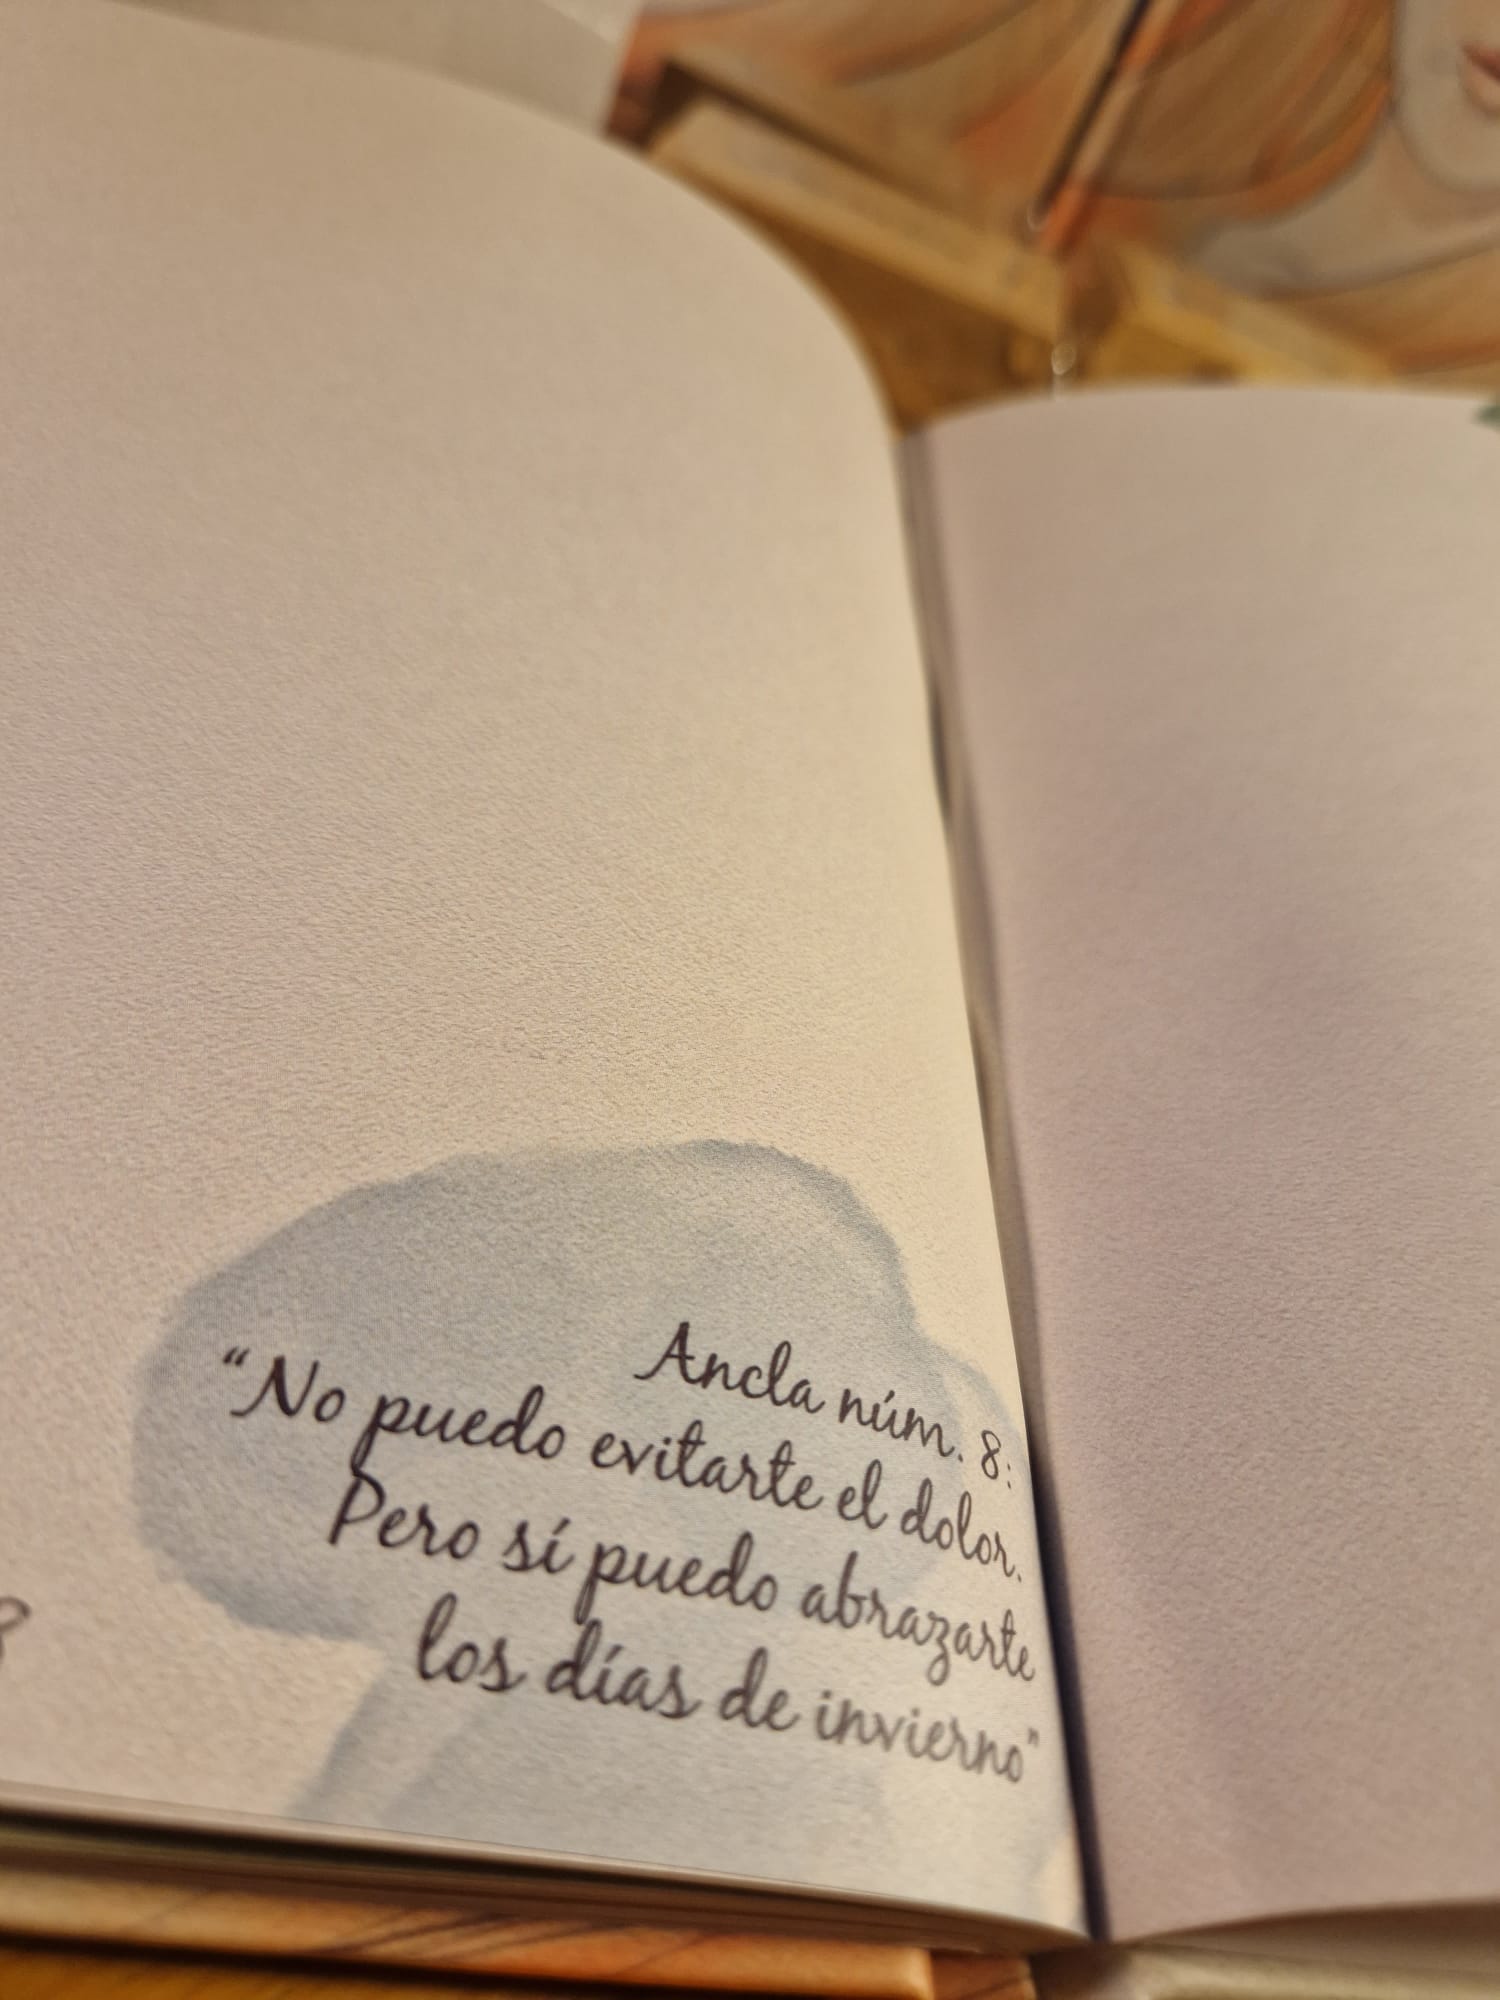 Ancla núm. 8:
“No puedo evitarte el dolor.
Pero sí puedo abrazarte
los días de invierno”